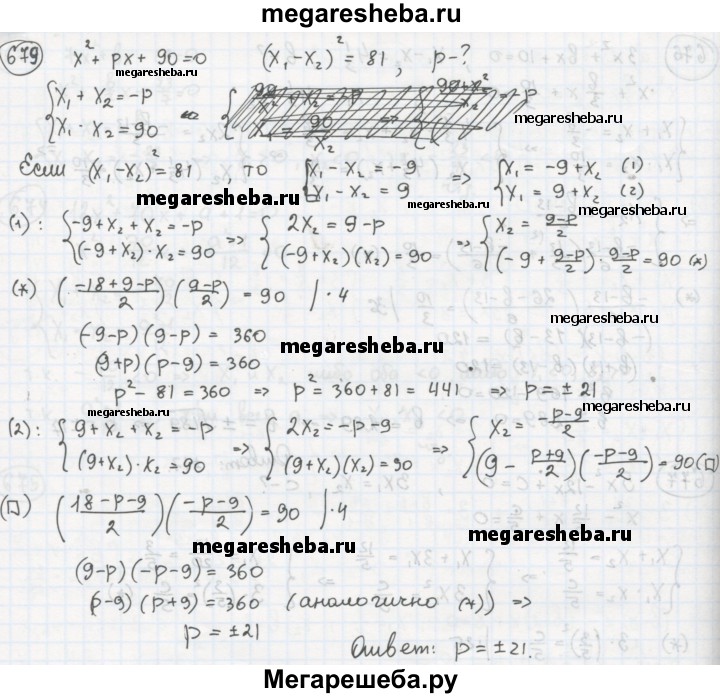 megaresheba.ru
679 x² + px + 90 = 0 (x₁ - x₂)² = 81, p - ?
megaresheba.ru
{ x₁ + x₂ = -p
{ x₁ · x₂ = 90
megaresheba.ru
Если (x₁ - x₂)² = 81, то { x₁ - x₂ = -9 { x₁ - x₂ = 9 => { x₁ = -9 + x₂ (1) { x₁ = 9 + x₂ (2)
megaresheba.ru megaresheba.ru megaresheba.ru
(1): { -9 + x₂ + x₂ = -p { (-9 + x₂) · x₂ = 90 => { 2x₂ = 9 - p { (-9 + x₂)(x₂) = 90 => { x₂ = (9-p)/2 { (-9 + (9-p)/2) · (9-p)/2 = 90 (*)
(*) ((-18+9-p)/2)((9-p)/2) = 90 | · 4
(-9-p)(9-p) = 360
megaresheba.ru
(9+p)(p-9) = 360
p² - 81 = 360 => p² = 360 + 81 = 441 => p = ± 21
megaresheba.ru megaresheba.ru
(2): { 9 + x₂ + x₂ = -p { (9+x₂) · x₂ = 90 => { 2x₂ = -p - 9 { (9+x₂)(x₂) = 90 => { x₂ = (-p-9)/2 { (9 - (p+9)/2)((-p-9)/2) = 90 (□)
(□) ((18-p-9)/2)((-p-9)/2) = 90 | · 4
megaresheba.ru megaresheba.ru
(9-p)(-p-9) = 360
(p-9)(p+9) = 360 (аналогично (*)) =>
p = ± 21
Ответ: p = ± 21.
Мегарешеба.ру